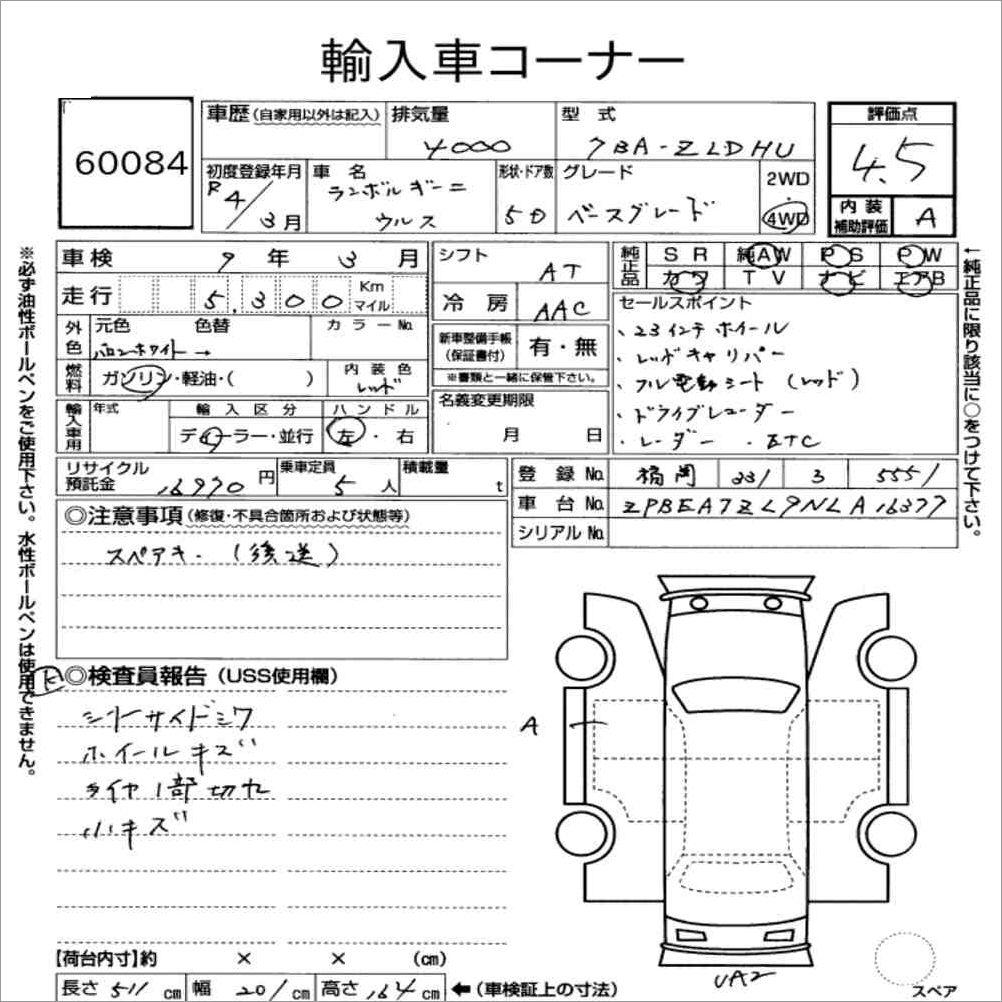 輸入車コーナー
60084
車歴(自家用以外は記入)
排気量
4000
型 式
7BA-ZLDHU
評価点
4.5
初度登録年月
R4/3月
車 名
ランボルギーニ
ウルス
形状・ドア数
5D
グレード
ベースグレード
2WD
4WD
内 装
補助評価
A
車検 9年 3月
走行 5,300 Km
マイル
外色
元色 色替
バロンホワイト →
カラーNo.
燃料
ガソリン・軽油・( )
内 装 色
レッド
輸入車用
年式
輸 入 区 分
ディーラー・並行
ハ ン ド ル
左・右
シフト
AT
冷 房
AAC
新車整備手帳
(保証書付)
有・無
※書類と一緒に保管下さい。
名義変更期限
月 日
純正品
SR 純AW PS PW
カワ TV ナビ エアB
セールスポイント
・23インチホイール
・レッドキャリパー
・フル電動シート(レッド)
・ドライブレコーダー
・レーダー ・ETC
リサイクル
預託金
16970円
乗車定員
5人
積載量
t
登 録 No.
福岡 331 3 5551
車 台 No.
ZPBEA7ZL9NLA16377
シリアルNo.
◎注意事項(修復・不具合箇所および状態等)
スペアキー(後送)
◎検査員報告(USS使用欄)
シートサイドシワ
ホイールキズ
タイヤ1部切れ
小キズ
A
UA2
スペア
【荷台内寸】約 × × (cm)
長さ 511 cm 幅 201 cm 高さ 164 cm ←(車検証上の寸法)
※必ず油性ボールペンをご使用下さい。水性ボールペンは使用できません。
←純正品に限り該当に○をつけて下さい。